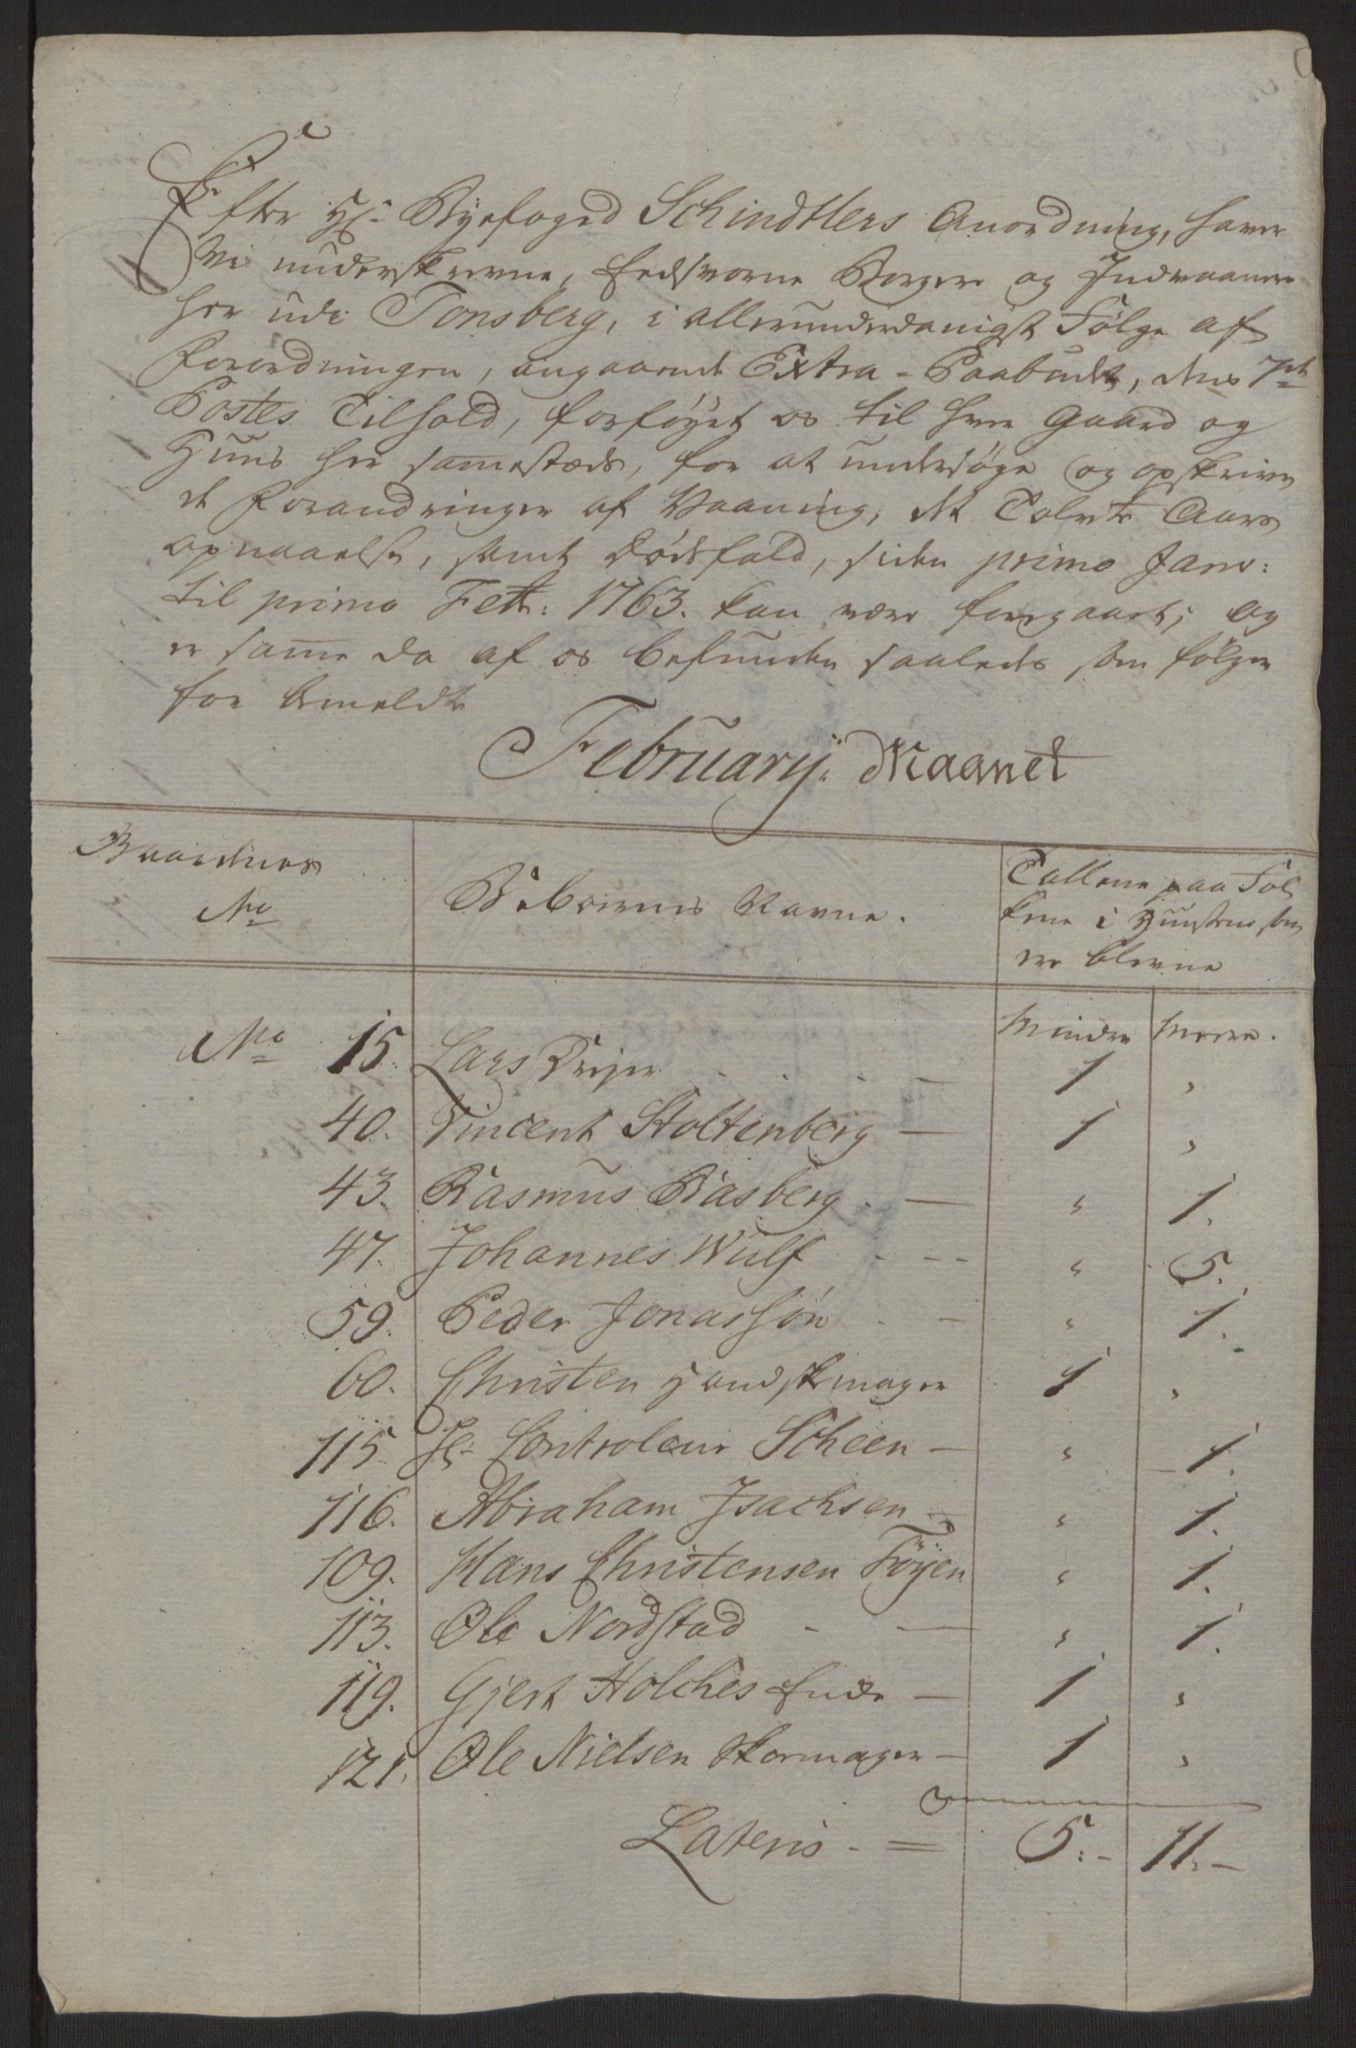 Efter Hr. Byefoged Schindtlers Anordning, haver
Vi underskrevne, Eedsvorne Borgere og Indvaanere
her udi Tonsberg, i allerunderdanigst Følge af
Forordningen, angaaende Extra-Paabudet, dens 7de
Postes Tilhold, forføyet os til hver Gaard og
Huus her sammestæds, for at undersøge og opskrive
de Forandringer af Vaaning, de Tolv Aars
opnaaelse, samt Dødsfald, siden primo Janv:
til primo Febr: 1763. kan være foregaaet; og
er samme da af os befunden saaledes som følger
for Anmeldt
February: Maanet
Gaardenes
No
Beboernes Navne.
Tallene paa Fol-
kene i Huusene som
ere blevne
Mindre Meere.
No 15. Lars Dreyer . . . — 1 "
40. Vincent Stoltenberg — 1 "
43. Rasmus Basberg . — " 1.
47. Johannes Wulf - - - " 5.
59. Peder Jonassøn - — " 1.
60. Christen Handskemager 1 "
115. Hr. Controleur Scheen — " 1.
116. Abraham Isachsen — " 1.
109. Hans Christensen Føyen " 1.
113. Ole Nordstad - — " 1.
119. Gjert Holches Enke — 1 "
121. Ole Nielsen Skomager — 1 "
Lateris - = 5:- 11:-